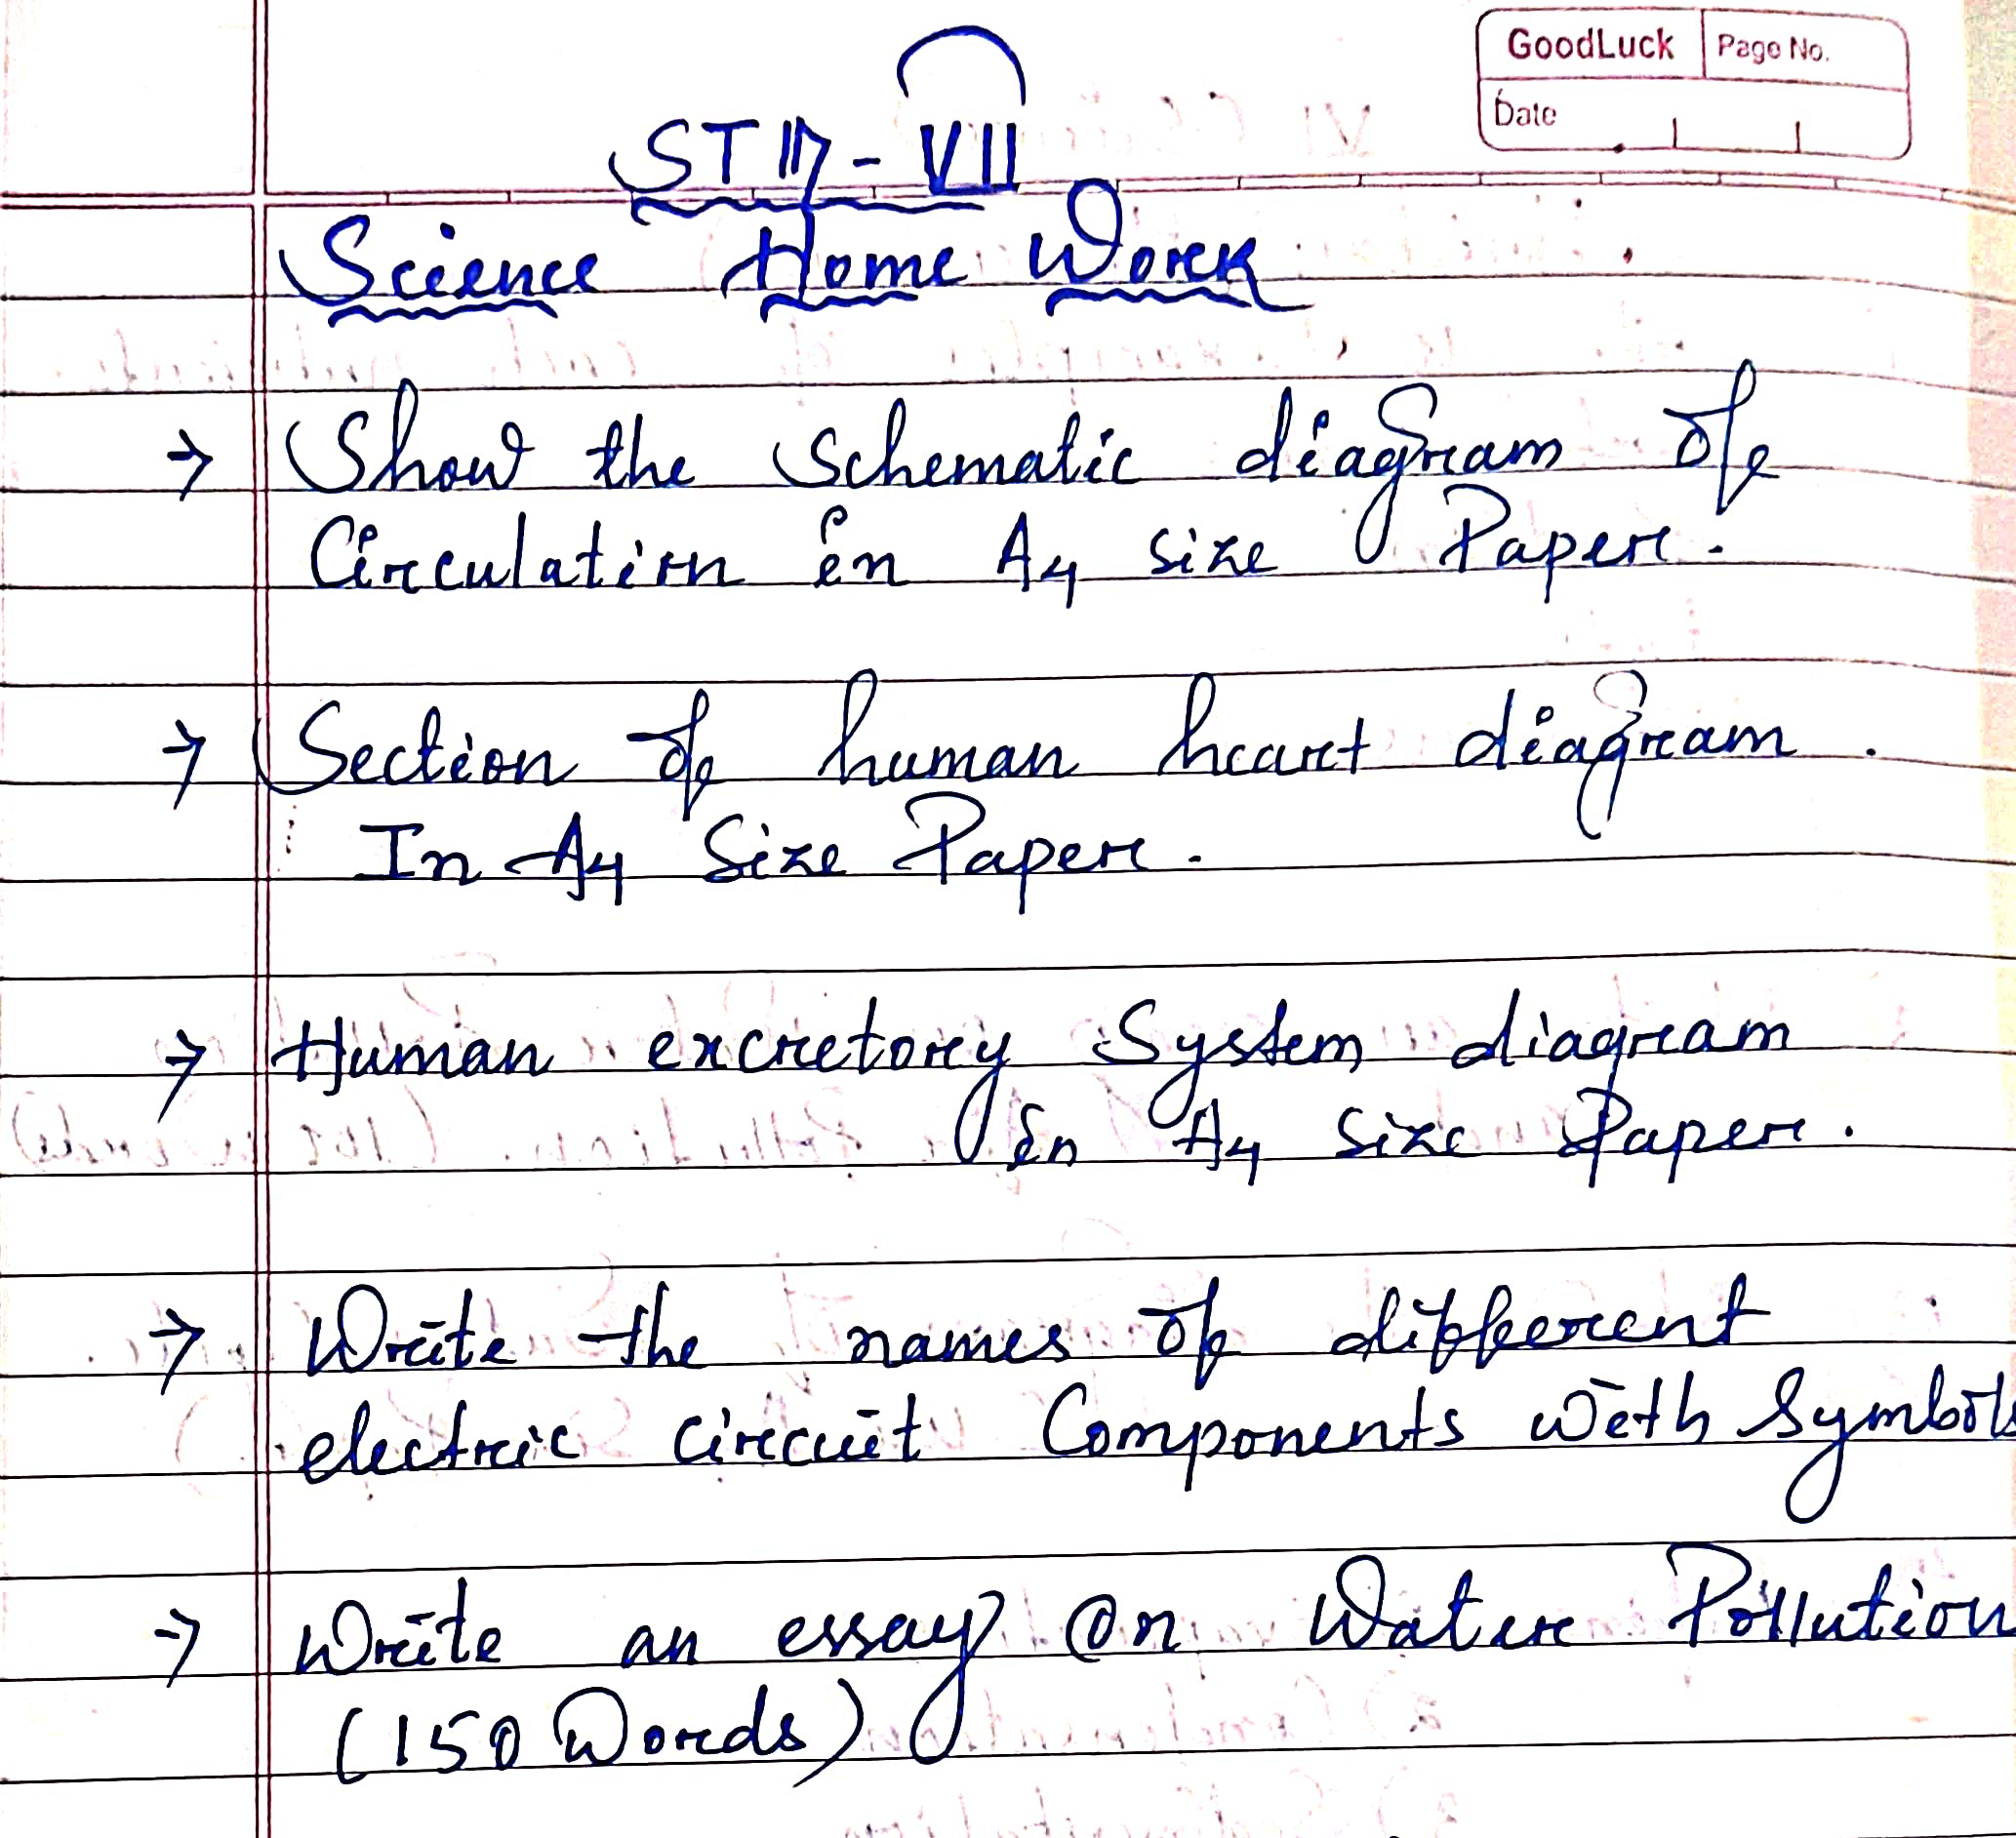 GoodLuck Page No.
Date
STD - VII
Science Home Work
→ Show the schematic diagram of
Circulation in A4 size Paper.
→ Section of human heart diagram.
In A4 Size Paper.
→ Human excretory System diagram
in A4 size Paper.
→ Write the names of different
electric circuit Components with Symbols
→ Write an essay on Water Pollution
(150 Words)